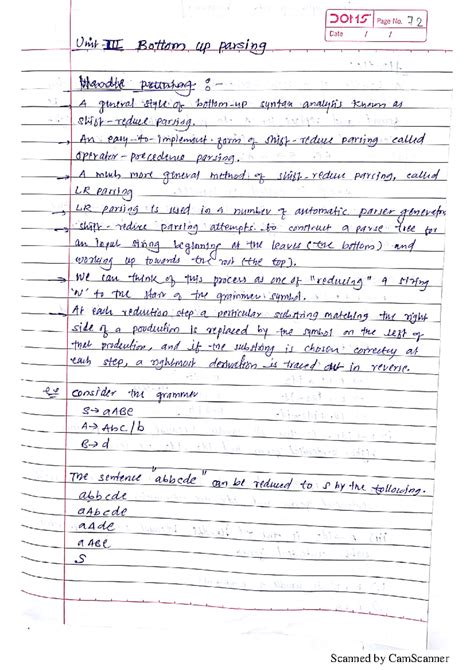 DOMS Page No. 72
Date / /
Unit III Bottom up parsing
Handle pruning :-
→ A general style of bottom-up syntax analysis known as
shift-reduce parsing.
→ An easy-to-implement form of shift-reduce parsing called
operator-precedence parsing.
→ A much more general method of shift-reduce parsing, called
LR parsing
→ LR parsing is used in a number of automatic parser generators
→ shift-reduce parsing attempts to construct a parse tree for
an input string beginning at the leaves (the bottom) and
working up towards the root (the top).
→ We can think of this process as one of "reducing" a string
'w' to the start of the grammer symbol.
→ At each reduction step a perticular substring matching the right
side of a production is replaced by the symbol on the left of
that production, and if the substring is chosen correctly at
each step, a rightmost derivation is traced out in reverse.
e.g consider the grammer
S→aABe
A→Abc/b
B→d
The sentence "abbcde" can be reduced to S by the following.
abbcde
aAbcde
aAde
aABe
S
Scanned by CamScanner